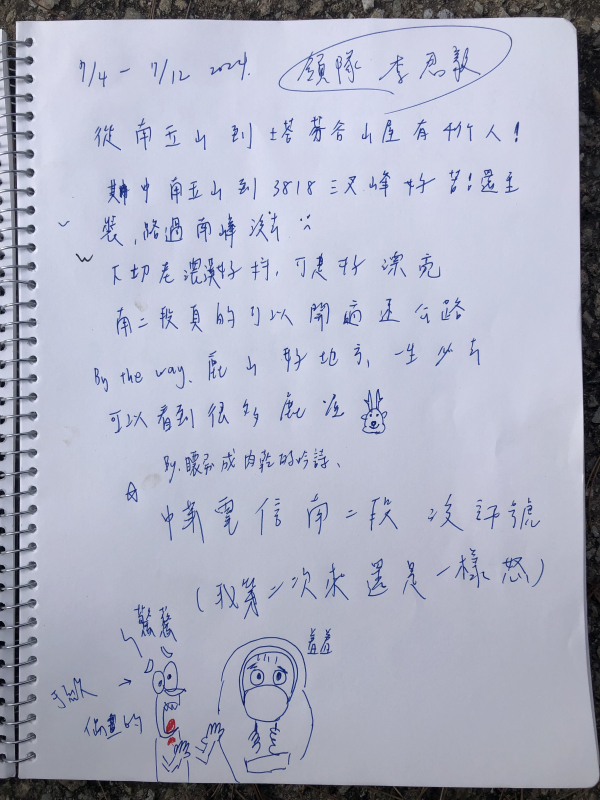 7/4 - 7/12 2024. 領隊 李思毅
從南玉山到塔芬谷山屋有4個人!
其中南玉山到3818三叉峰好苦!還主
裝,路過南峰沒去
下切老濃溪好抖,可是好漂亮
南二段真的可以開高速公路
By the way. 鹿山好地方,一生必去
可以看到很多鹿
By. 曬成肉乾的吟詩、
☆ 中華電信南二段沒訊號
(我第二次來還是一樣怒)
羞羞
偷畫的